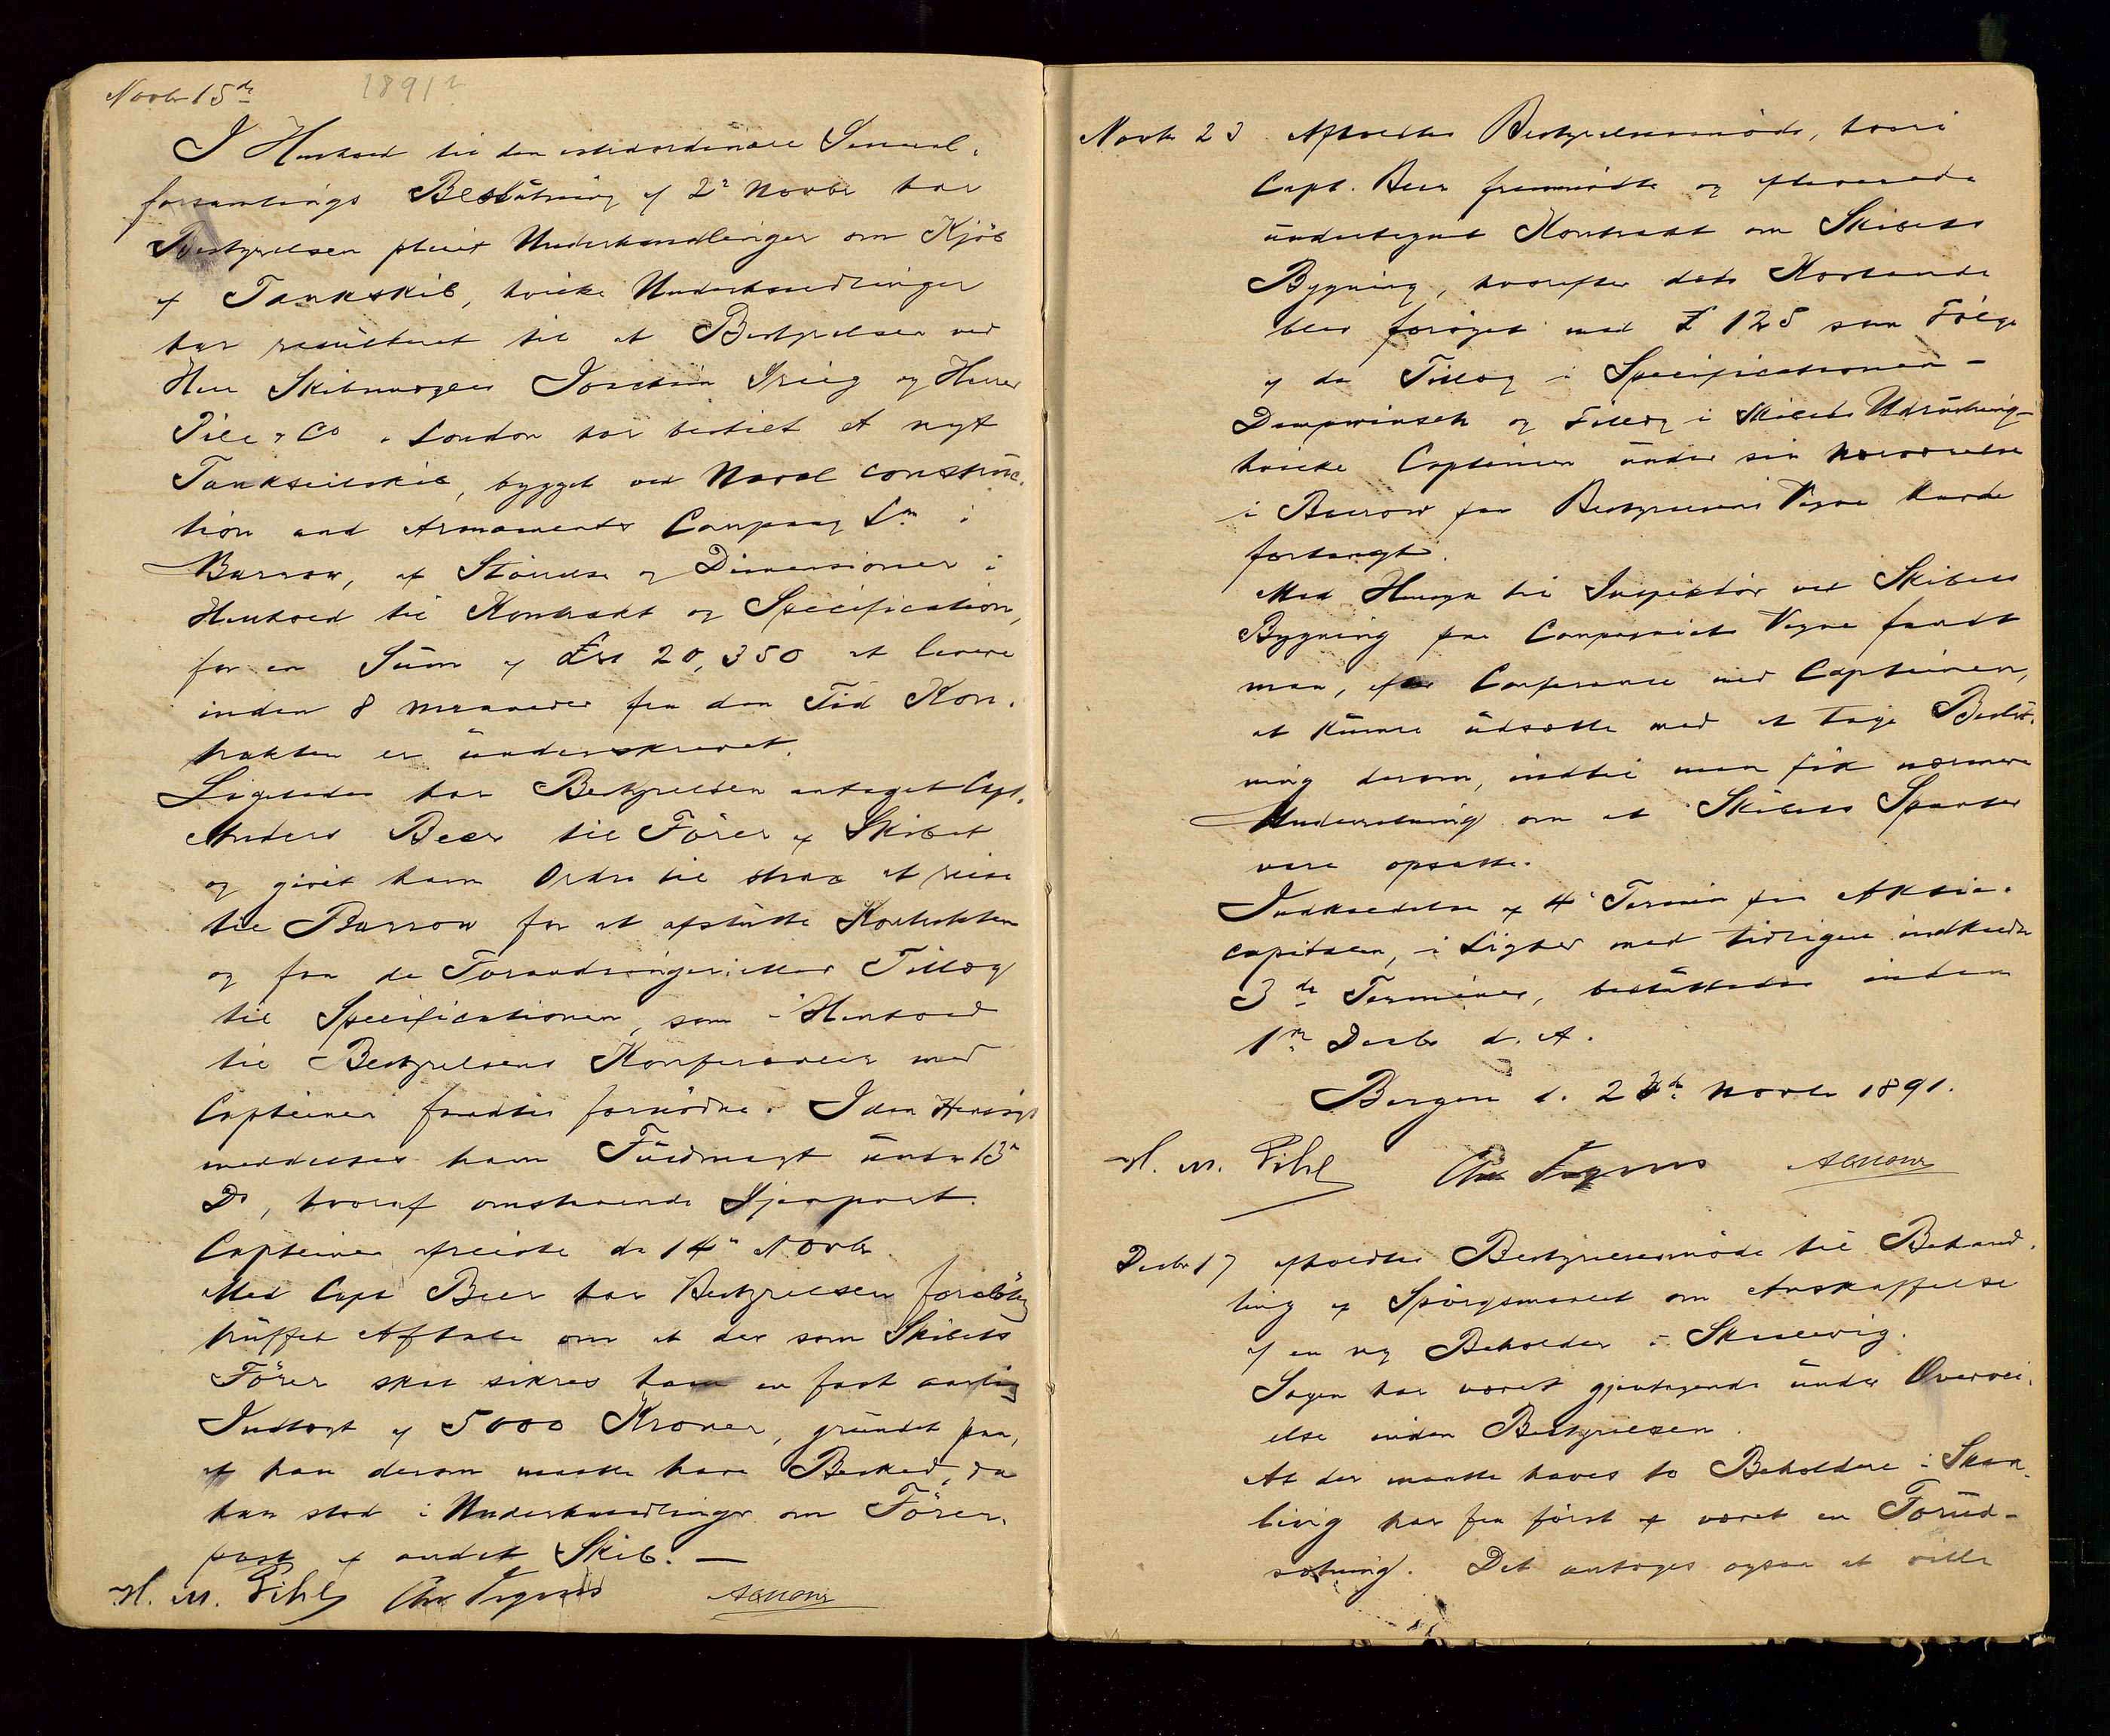 Novbr 15de 1891?
I Henhold til den extraordinære General-
forsamlings Beslutning af 2n Novbr har
Bestyrelsen pleiet Underhandlinger om Kjöb
af Tankskib, hvilke Underhandlinger
har resulteret til at Bestyrelsen ved
Herr Skibsmægler Joachim Grieg og Herrer
Pile & Co i London har bestilt et nyt
Tankseilskib, bygget ved Naval construc-
tion and Armaments Company Lm i
Barrow, af Störrelse og Dimensioner i
Henhold til Kontrakt og Specification,
for en Sum af £st 20,350 at levere
inden 8 Maaneder fra den Tid Kon-
trakten er underskrevet.
Ligeledes har Bestyrelsen antaget Capt.
Anders Beer til Förer af Skibet
og givet ham Ordre til strax at reise
til Barrow for at afslutte Kontrakten
og faa de Forandringer eller Tillæg
til Specificationen, som i Henhold
til Bestyrelsens Konferancer med
Capteinen fandtes fornödne. I den Hensigt
meddeltes ham Fuldmagt under 13n
Ds, hvoraf omstaaende Gjenpart.
Capteinen afreiste de 14n Novbr.
Med Capt Beer har Bestyrelsen foreløbig
truffet Aftale om at der som Skibets
Förer skal sikres ham en fast aarlig
Indtægt af 5000 Kroner, grundet paa,
at han derom maatte have Besked, da
han stod i Underhandlinger om Förer-
post af andet Skib. —
H. M. Pihl Chr Irgens
Novbr 23 Afholdtes Bestyrelsesmöde, hvori
Capt. Beer fremmödte og afleverede
undertegnet Kontrakt om Skibets
Bygning, hvorefter dets Kostende
blev foröget med £ 125 som Fölge
af de Tillæg i Specificationen —
Dampwinsch og Tillæg i Skibets Udrustning —
hvilke Capteinen under sin Nærværelse
i Barrow paa Bestyrelsens Vegne havde
forlangt.
Med Hensyn til Inspektör ved Skibets
Bygning paa Companiets Vegne fandt
man, efter Conferance med Capteinen,
at kunne udsætte med at tage Beslut-
ning derom, indtil man fik nærmere
Underretning om at Skibets Spanter
vare opsatte.
Indkaldelse af 4de Termin paa Aktie-
capitalen, i Lighed med tidligere indkaldte
3de Terminer, besluttedes inden
1n Decbr d. A.
Bergen d. 23de Novbr 1891.
H. M. Pihl Chr Irgens
Decbr 17 afholdtes Bestyrelsesmöde til Behand-
ling af Spörgsmaalet om Anskaffelse
af en ny Beholder i Skaalevig.
Sagen har været gjentagende under Overvei-
else inden Bestyrelsen.
At der maatte haves to Beholdere i Skaa-
levig har fra först af været en Forud-
sætning. Det antages ogsaa at ville